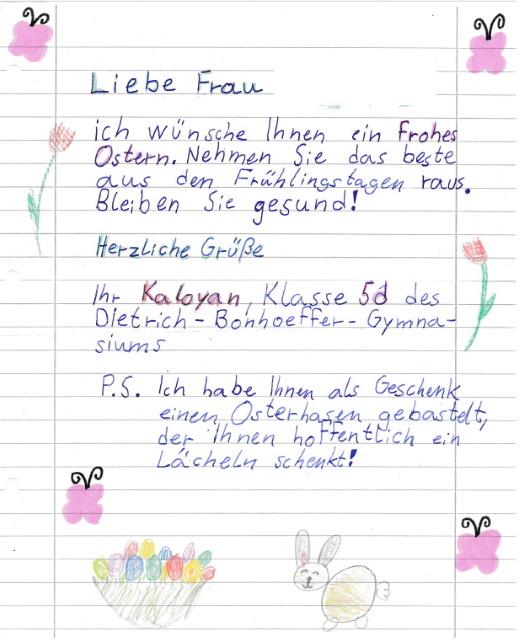 Liebe Frau
ich wünsche Ihnen ein Frohes
Ostern. Nehmen Sie das beste
aus den Frühlingstagen raus.
Bleiben Sie gesund!
Herzliche Grüße
Ihr Kaloyan, Klasse 5d des
Dietrich-Bonhoeffer-Gymna-
siums
P.S. Ich habe Ihnen als Geschenk
einen Osterhasen gebastelt,
der Ihnen hoffentlich ein
Lächeln schenkt!